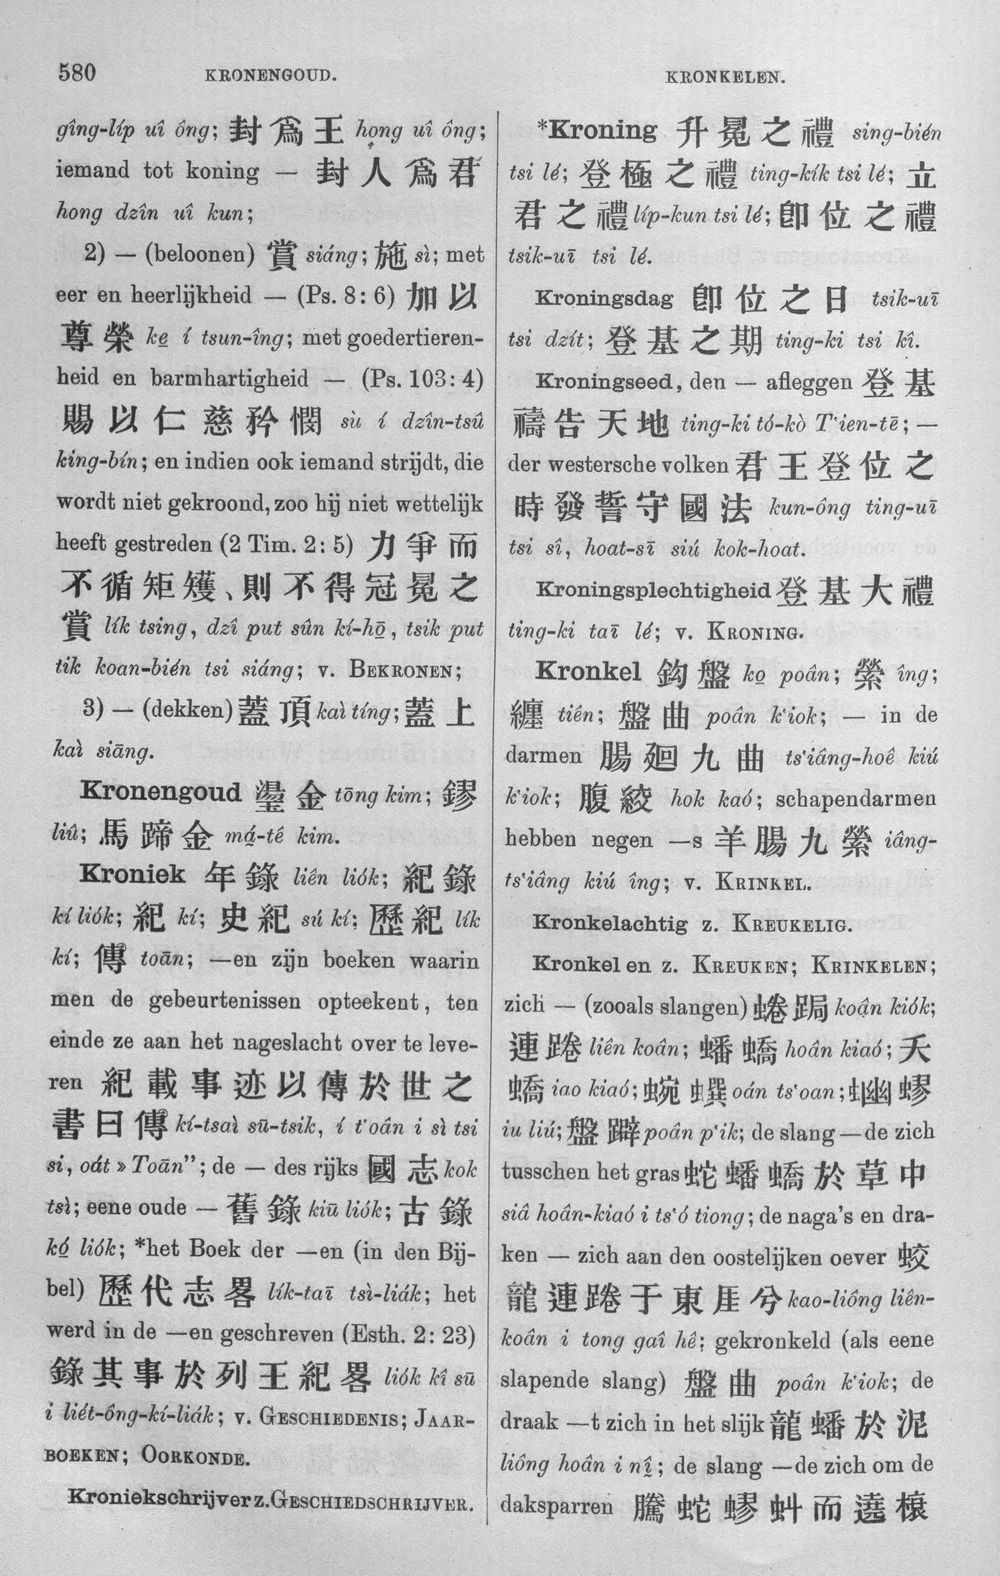 580
KRONENGOUD.
KRONKELEN.
gîng-líp uî ông; 封爲王 hong uî ông;
iemand tot koning — 封人爲君
hong dzîn uî kun;
2) — (beloonen) 賞 siáng; 施 sì; met
eer en heerlijkheid — (Ps. 8: 6) 加以
尊榮 ke̱ í tsun-îng; met goedertieren-
heid en barmhartigheid — (Ps. 103: 4)
賜以仁慈矜憫 sù í dzîn-tsû
king-bín; en indien ook iemand strijdt, die
wordt niet gekroond, zoo hij niet wettelijk
heeft gestreden (2 Tim. 2: 5) 力爭而
不循矩矱、則不得冠冕之
賞 lík tsing, dzî put sûn kí-hō̱, tsik put
tik koan-bién tsi siáng; v. BEKRONEN;
3) — (dekken) 蓋頂 kaì tíng; 蓋上
kaì siāng.
Kronengoud 璗金 tōng kim; 鏐
liû; 馬蹄金 má̱-tê kim.
Kroniek 年錄 liên liók; 紀錄
kí liók; 紀 kí; 史紀 sú kí; 歷紀 lík
kí; 傳 toān; —en zijn boeken waarin
men de gebeurtenissen opteekent, ten
einde ze aan het nageslacht over te leve-
ren 紀載事迹以傳於世之
書曰傳 kí-tsaì sū-tsik, í t'oân i sì tsi
si, oát » Toān"; de — des rijks 國志 kok
tsì; eene oude — 舊錄 kiū liók; 古錄
kó̱ liók; *het Boek der —en (in den Bij-
bel) 歷代志畧 lík-taī tsì-liák; het
werd in de —en geschreven (Esth. 2: 23)
錄其事於列王紀畧 liók kî sū
i liét-ông-kí-liák; v. GESCHIEDENIS; JAAR-
BOEKEN; OORKONDE.
Kroniekschrijver z. GESCHIEDSCHRIJVER.
*Kroning 升冕之禮 sing-bién
tsi lé; 登極之禮 ting-kík tsi lé; 立
君之禮 líp-kun tsi lé; 卽位之禮
tsik-uī tsi lé.
Kroningsdag 卽位之日 tsik-uī
tsi dzít; 登基之期 ting-ki tsi kî.
Kroningseed, den — afleggen 登基
禱告天地 ting-ki tó-kò T'ien-tē; —
der westersche volken 君王登位之
時發誓守國法 kun-ông ting-uī
tsi sî, hoat-sī siú kok-hoat.
Kroningsplechtigheid 登基大禮
ting-ki taī lé; v. KRONING.
Kronkel 鈎盤 ko̱ poân; 縈 îng;
纏 tiên; 盤曲 poân k'iok; — in de
darmen 腸廻九曲 ts'iâng-hoê kiú
k'iok; 腹絞 hok kaó; schapendarmen
hebben negen —s 羊腸九縈 iâng-
ts'iâng kiú îng; v. KRINKEL.
Kronkelachtig z. KREUKELIG.
Kronkelen z. KREUKEN; KRINKELEN;
zich — (zooals slangen) 蜷跼 koân kiók;
連踡 liên koân; 蟠蟜 hoân kiaó; 夭
蟜 iao kiaó; 蜿蟤 oán ts'oan; 蚴蟉
iu liú; 盤躃 poân p'ik; de slang — de zich
tusschen het gras 蛇蟠蟜於草中
siâ hoân-kiaó i ts'ó tiong; de naga's en dra-
ken — zich aan den oostelijken oever 蛟
龍連踡于東厓兮 kao-liông liên-
koân i tong gaî hê; gekronkeld (als eene
slapende slang) 盤曲 poân k'iok; de
draak —t zich in het slijk 龍蟠於泥
liông hoân i nî̱; de slang —de zich om de
daksparren 騰蛇蟉虯而遶榱